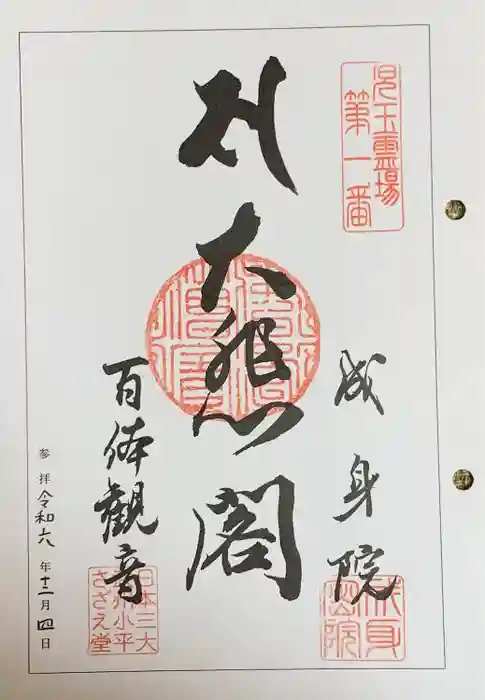 児玉霊場
第一番
成身院
成身
密院
大悲閣
百体観音
日本三大
小平
さざえ堂
参拝 令和六年十二月四日